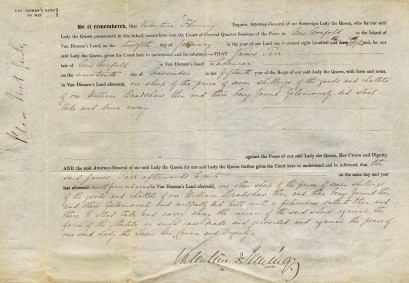 VAN DIEMEN'S LAND
TO WIT.
Be it remembered, that Valentine Fleming Esquire, Attorney-General of our Sovereign Lady the Queen, who by our said
Lady the Queen prosecutes in this behalf, comes here into the Court of General Quarter Sessions of the Peace in New Norfolk in the Island of
Van Diemen's Land, on the day of in the year of our Lord one thousand eight hundred and and, for our
said Lady the Queen, gives the Court here to understand and be informed :—THAT James
late of New Norfolk in Van Diemen's Land Labourer
on the day of November in the fifteenth year of the Reign of our said Lady the Queen, with force and arms,
in Van Diemen's Land aforesaid, one sheep of the price of seven shillings of the goods and chattels
of one William Bradshaw then and there being found feloniously did steal
take and drive away
against the Peace of our said Lady the Queen, Her Crown and Dignity.
Plea Not Guilty
AND the said Attorney-General of our said Lady the Queen for our said Lady the Queen further gives the Court here to understand and be informed that the
said James afterwards to wit on the same day and year
last aforesaid with force and arms in Van Diemen's Land aforesaid, one other sheep of the price of seven shillings
of the goods and chattels of one William Bradshaw then and there being found then
and there feloniously and wilfully did kill with a felonious intent then and
there to steal take and carry away the carcase of the said sheep against the
form of the Statute in such case made and provided and against the peace of
our said Lady the Queen Her Crown and Dignity
Valentine Fleming